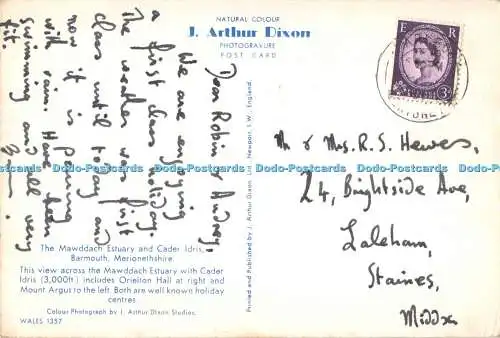 NATURAL COLOUR
J. Arthur Dixon
PHOTOGRAVURE
POST CARD
Dear Robin & Audrey,
We are enjoying
a first class holiday.
The weather was first
class until today and
now it is pouring
with rain. Have been
swimming and all very
fit.
The Mawddach Estuary and Cader Idris,
Barmouth, Merionethshire.
This view across the Mawddach Estuary with Cader
Idris (3,000ft) includes Orielton Hall at right and
Mount Argus to the left. Both are well known holiday
centres.
Colour Photograph by J. Arthur Dixon Studios.
WALES 1357
Printed and Published by J. Arthur Dixon, Ltd. Newport, I.W., England.
E R
3D
Mr & Mrs. R. S. Hewes,
24, Brightside Ave,
Laleham,
Staines,
Middx
Dodo-Postcards Dodo-Postcards Dodo-Postcards Dodo-Postcards Dodo-Postcards